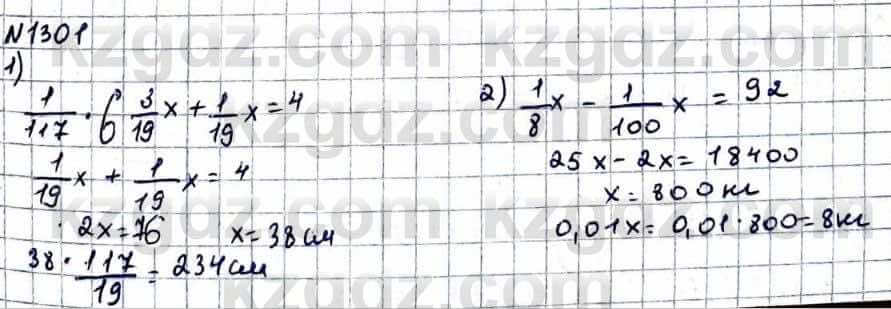 N1301
1)
1/117 · 6 3/19 x + 1/19 x = 4
1/19 x + 1/19 x = 4
2x = 76 x = 38 см
38 · 117/19 = 234 см
2) 1/8 x - 1/100 x = 92
25x - 2x = 18400
x = 800 кг
0,01x = 0,01 · 800 = 8 кг
kzgdz.com